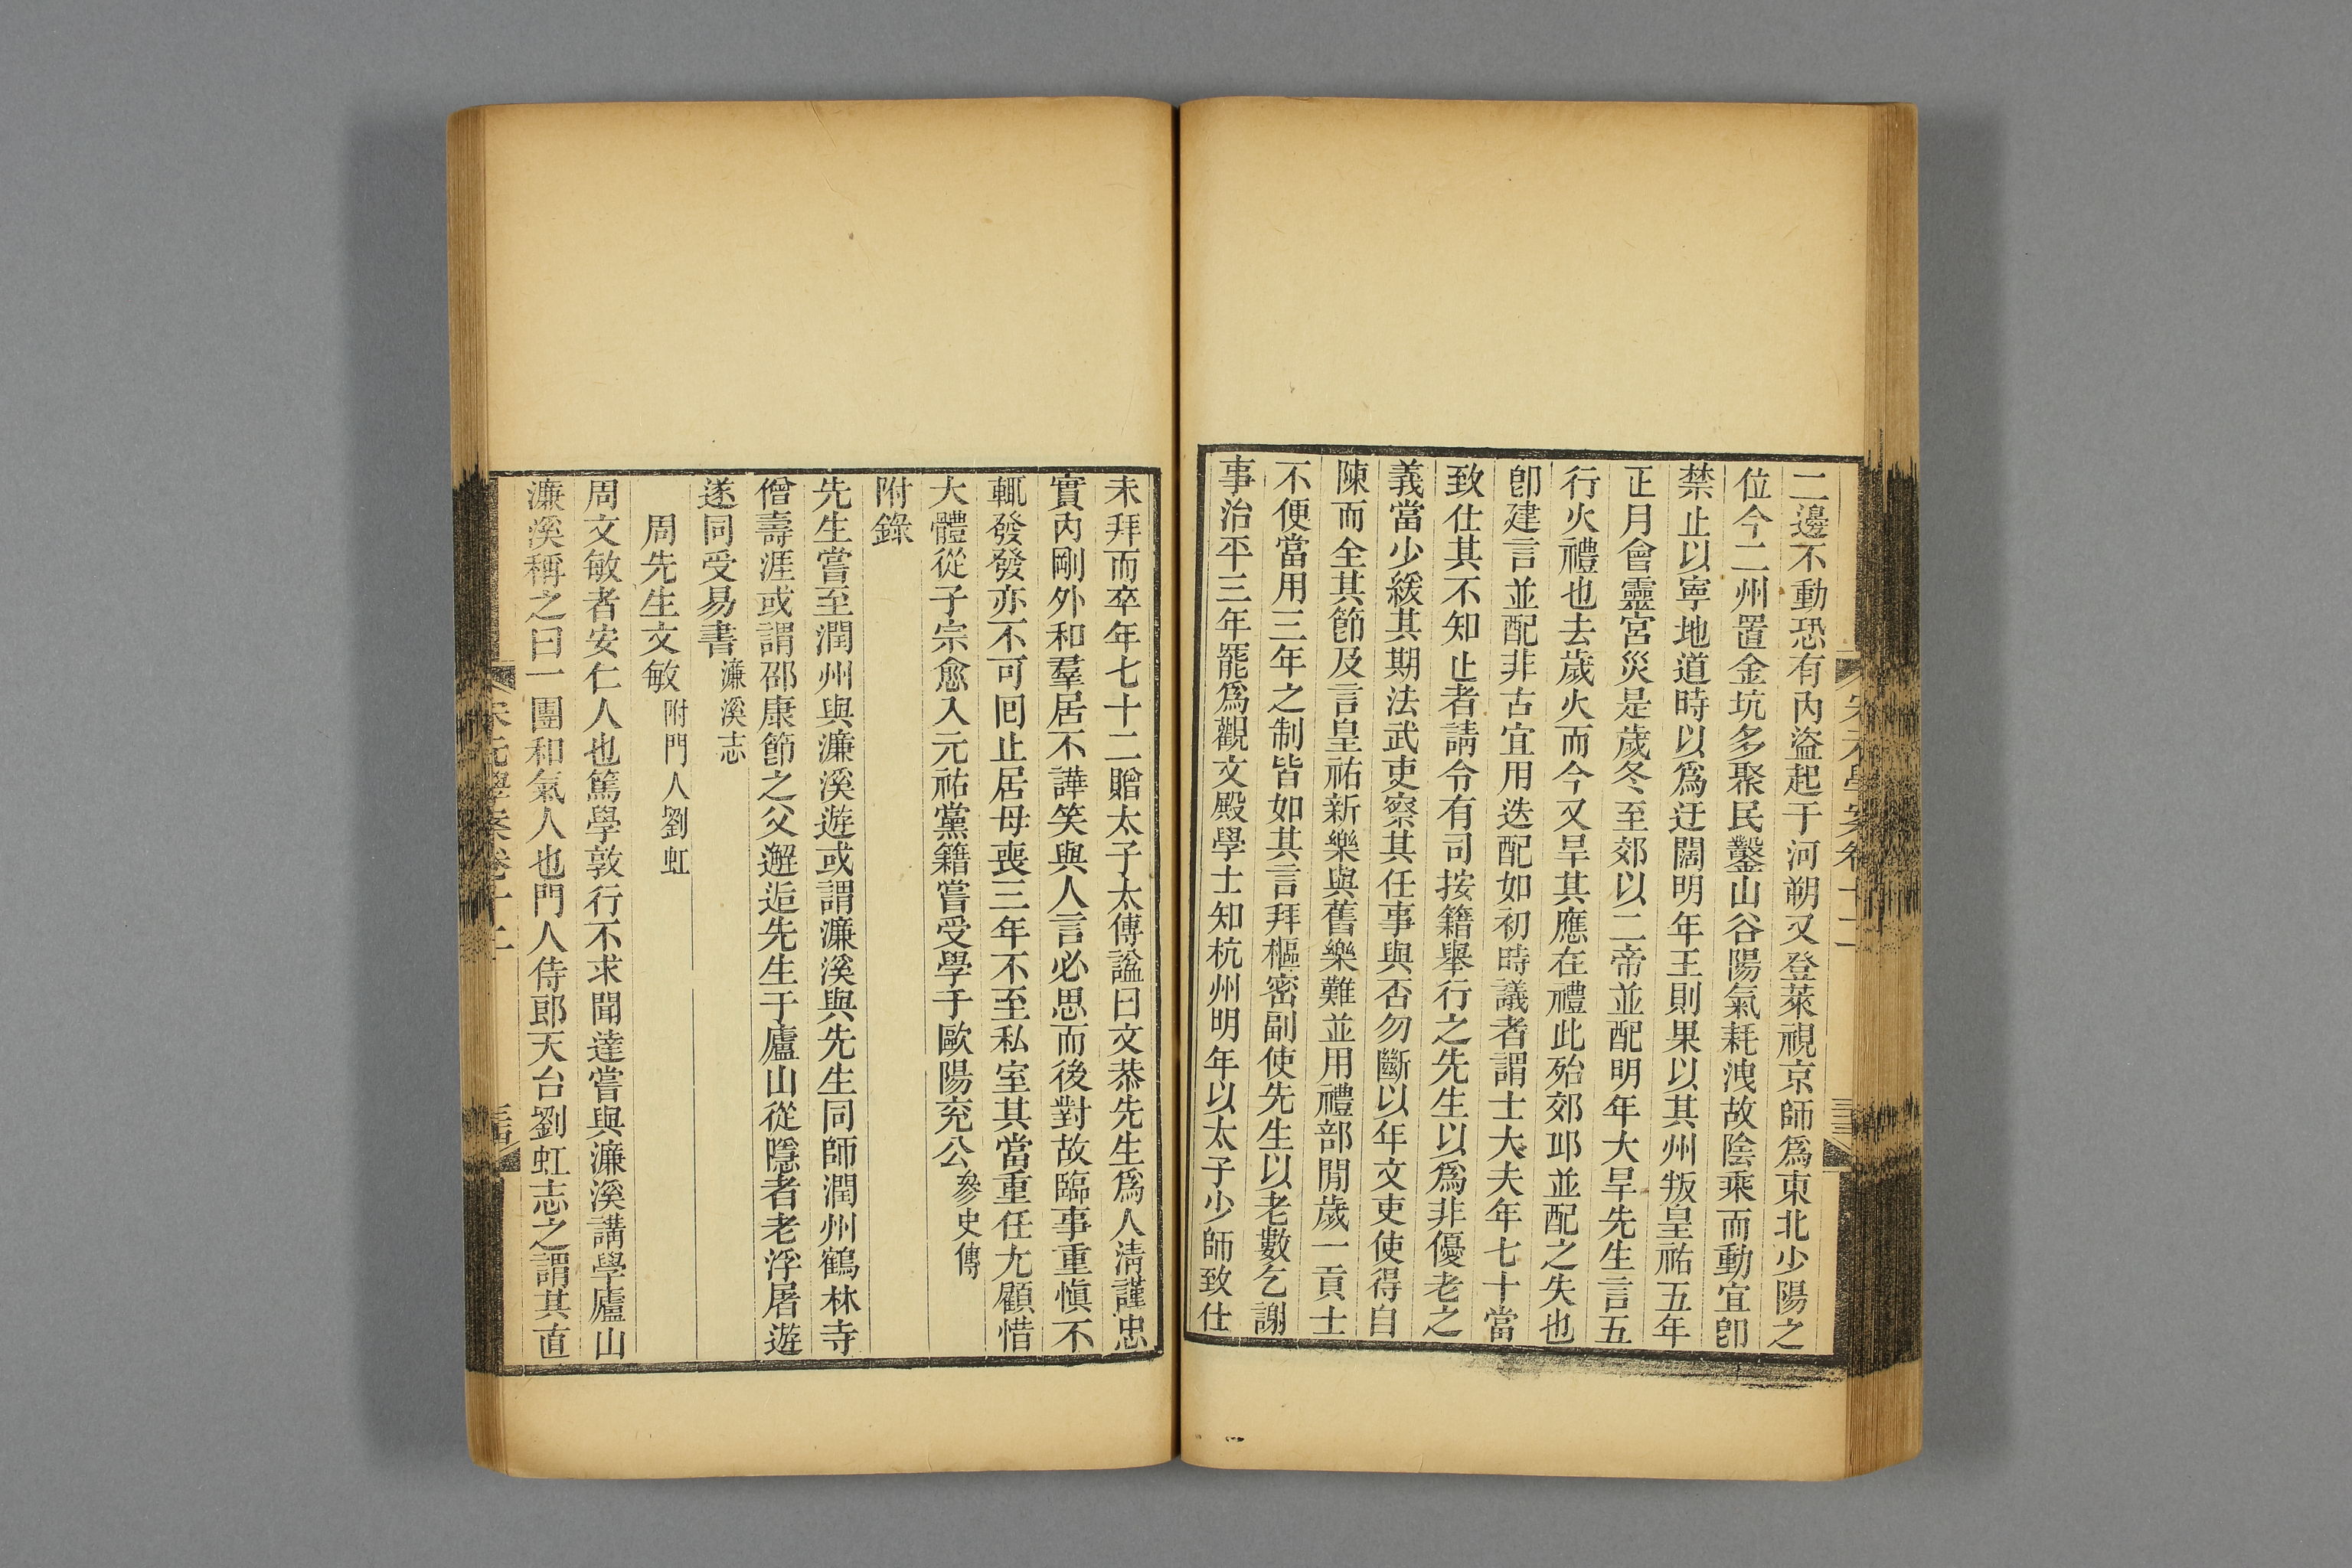 二邊不動恐有內盜起于河朔又登萊視京師爲東北少陽之
位今二州置金坑多聚民鑿山谷陽氣耗洩故陰乘而動宜卽
禁止以寧地道時以爲迂闊明年王則果以其州叛皇祐五年
正月會靈宮災是歲冬至郊以二帝並配明年大旱先生言五
行火禮也去歲火而今又旱其應在禮此殆郊邱並配之失也
卽建言並配非古宜用迭配如初時議者謂士大夫年七十當
致仕其不知止者請令有司按籍舉行之先生以爲非優老之
義當少緩其期法武吏察其任事與否勿斷以年文吏使得自
陳而全其節及言皇祐新樂與舊樂難並用禮部閒歲一貢士
不便當用三年之制皆如其言拜樞密副使先生以老數乞謝
事治平三年罷爲觀文殿學士知杭州明年以太子少師致仕
未拜而卒年七十二贈太子太傅諡曰文恭先生爲人淸謹忠
實內剛外和羣居不譁笑與人言必思而後對故臨事重愼不
輒發發亦不可回止居母喪三年不至私室其當重任尤顧惜
大體從子宗愈入元祐黨籍嘗受學于歐陽兗公參史傳
附錄
先生嘗至潤州與濂溪遊或謂濂溪與先生同師潤州鶴林寺
僧壽涯或謂邵康節之父邂逅先生于廬山從隱者老浮屠遊
遂同受易書濂溪志
周先生文敏附門人劉虹
周文敏者安仁人也篤學敦行不求聞達嘗與濂溪講學廬山
濂溪稱之曰一團和氣人也門人侍郎天台劉虹志之謂其直
宋元學案卷十二